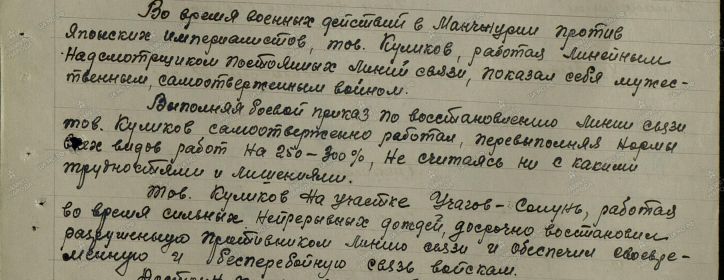 Во время военных действий в Манчжурии против
Японских империалистов, тов. Куликов, работая линейным
Надсмотрщиком постоянных линий связи, показал себя мужес-
твенным, самоотверженным воином.
Выполняя боевой приказ по восстановлению линии связи
тов. Куликов самоотверженно работал, перевыполняя нормы
всех видов работ на 250-300%, не считаясь ни с какими
трудностями и лишениями.
Тов. Куликов на участке Учагов-Солунь, работая
во время сильных непрерывных дождей, досрочно востановил
разрушеную противником линию связи и обеспечил своевре-
менную и бесперебойную связь войскам.